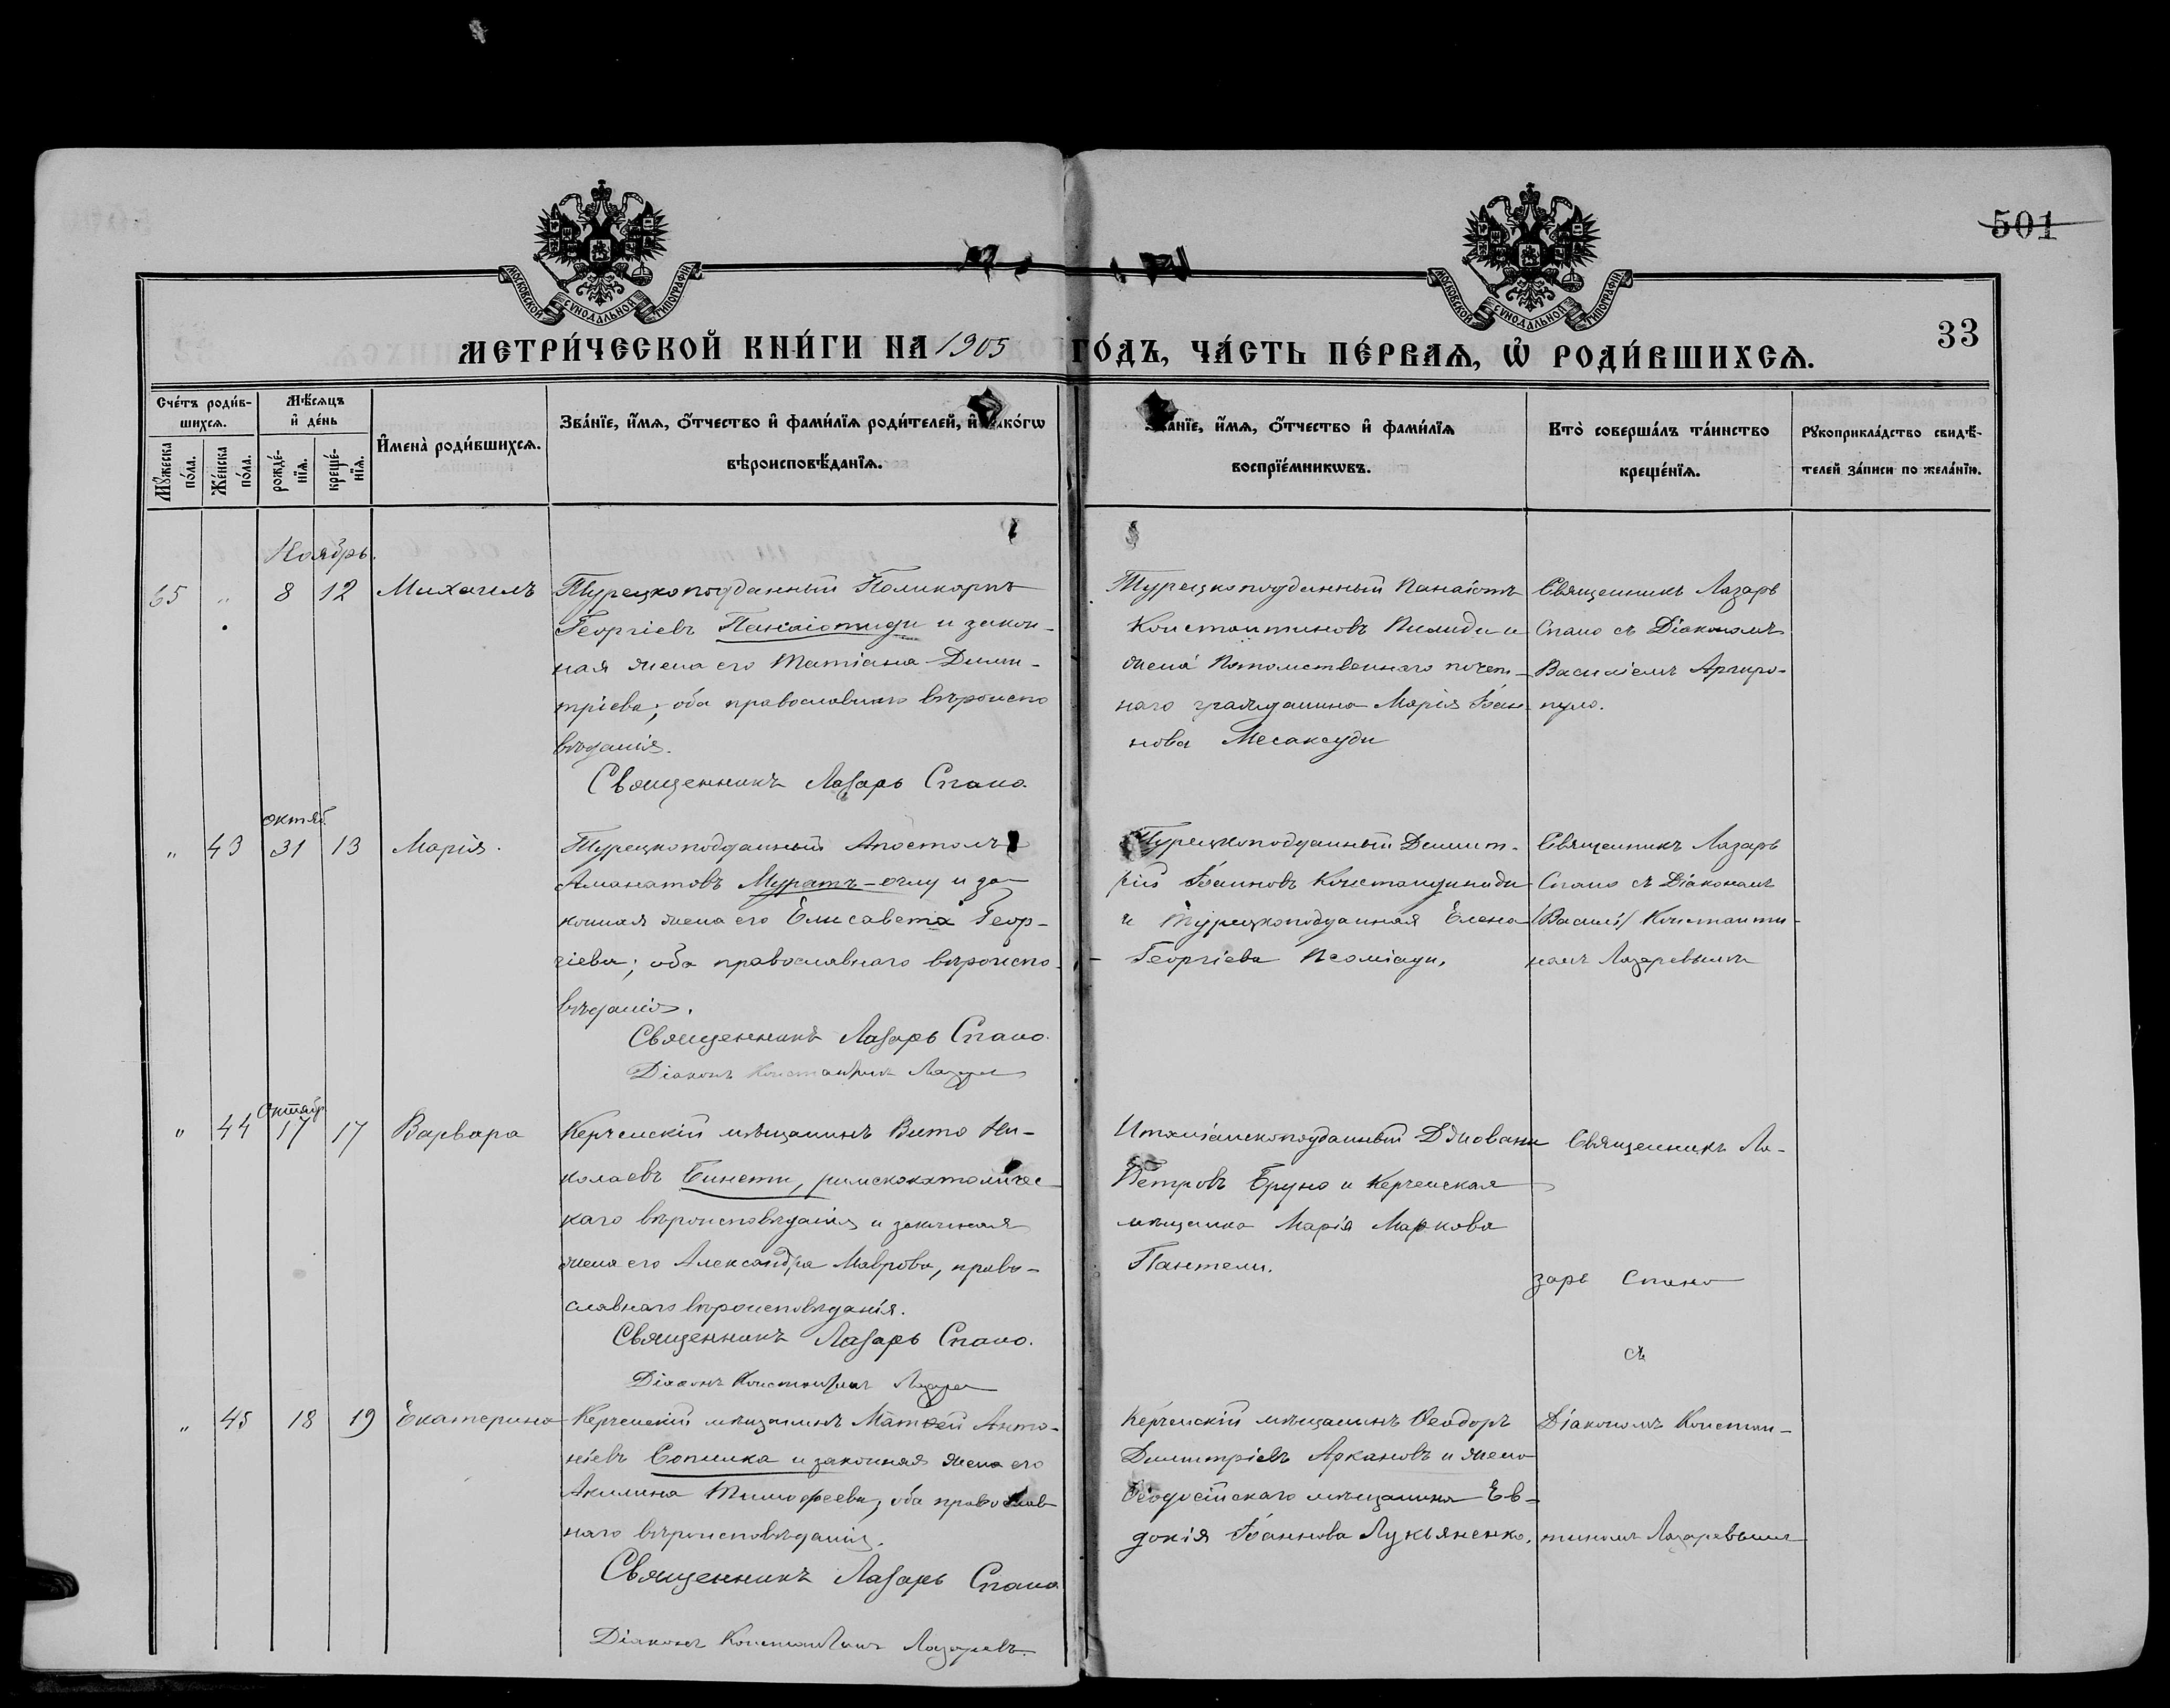 501
МОСКОВСКОЙ СѴНОДАЛЬНОЙ ТИПОГРАФІИ
МОСКОВСКОЙ СѴНОДАЛЬНОЙ ТИПОГРАФІИ
33
МЕТРИ́ЧЕСКОЙ КНИ́ГИ НА 1905 ГО́ДЪ, ЧА́СТЬ ПЕ́РВАѦ, Ѡ҆ РОДИ́ВШИХСѦ.
Сче́тъ роди́в-
шихсѧ.
Мѣ́сѧцъ
и҆ де́нь
Мꙋ́жеска
по́ла.
Же́нска
по́ла.
рожде́-
нїѧ.
креще́-
нїѧ.
И҆мена̀ роди́вшихсѧ.
Зва́нїе, и҆́мѧ, ѻ҆́тчество и҆ фами́лїѧ роди́телей, и҆ како́гѡ
вѣроисповѣ́данїѧ.
Зва́нїе, и҆́мѧ, ѻ҆́тчество и҆ фами́лїѧ
воспрїе́мникѡвъ.
Кто̀ соверша́лъ та́инство
креще́нїѧ.
Рꙋкоприкла́дство свидѣ́-
телей за́писи по жела́нїю.
Ноябрь.
65 " 8 12 Михаилъ
Турецкоподданный Поликарпъ
Георгіевъ Панаіотиди и закон-
ная жена его Татіана Дими-
тріева; оба православнаго вѣроиспо
вѣданія.
Священникъ Лазарь Спано.
Турецкоподданный Панаіотъ
Константиновъ и
жена Потомственнаго почет-
наго гражданина Марія Іоан
нова Месаксуди
Священникъ Лазарь
Спано съ Діакономъ
Василіемъ Аргиро-
пуло.
октяб.
" 43 31 13 Марія.
Турецкоподданный Апостолъ
Аманатовъ Муратъ-оглу и за-
конная жена его Елисавета Геор-
гіева; оба православнаго вѣроиспо-
вѣданія.
Священникъ Лазарь Спано.
Діаконъ Константинъ Лазарев
Турецкоподданный Димит-
рій Іоанновъ Констандиниди
и Турецкоподданная Елена
Георгіева
Священникъ Лазарь
Спано съ Діакономъ
/Васил/ Константи-
номъ Лазаревымъ
Октябр
" 44 17 17 Варвара
Керченскій мѣщанинъ Вито Ни-
колаевъ Бинети, римскокатоличес-
каго вѣроисповѣданія и законная
жена его Александра Маврова, право-
славнаго вѣроисповѣданія.
Священникъ Лазарь Спано.
Діаконъ Константинъ Лазарев
Италіанскоподданный Джіовани
Петровъ Бруно и Керченская
мѣщанка Марія Маркова
Пантели.
Священникъ Ла-
зарь Спано
съ
" 45 18 19 Екатерина
Керченскій мѣщанинъ Матѳей Анто-
ніевъ Сопилка и законная жена его
Акилина Тимофеева; оба православ-
наго вѣроисповѣданія.
Священникъ Лазарь Спано
Діаконъ Константинъ Лазаревъ.
Керченскій мѣщанинъ Ѳеодоръ
Димитріевъ Аркановъ и жена
Ѳеодосійскаго мѣщанина Ев-
докія Іоаннова Лукьяненко.
Діакономъ Констан-
тиномъ Лазаревымъ